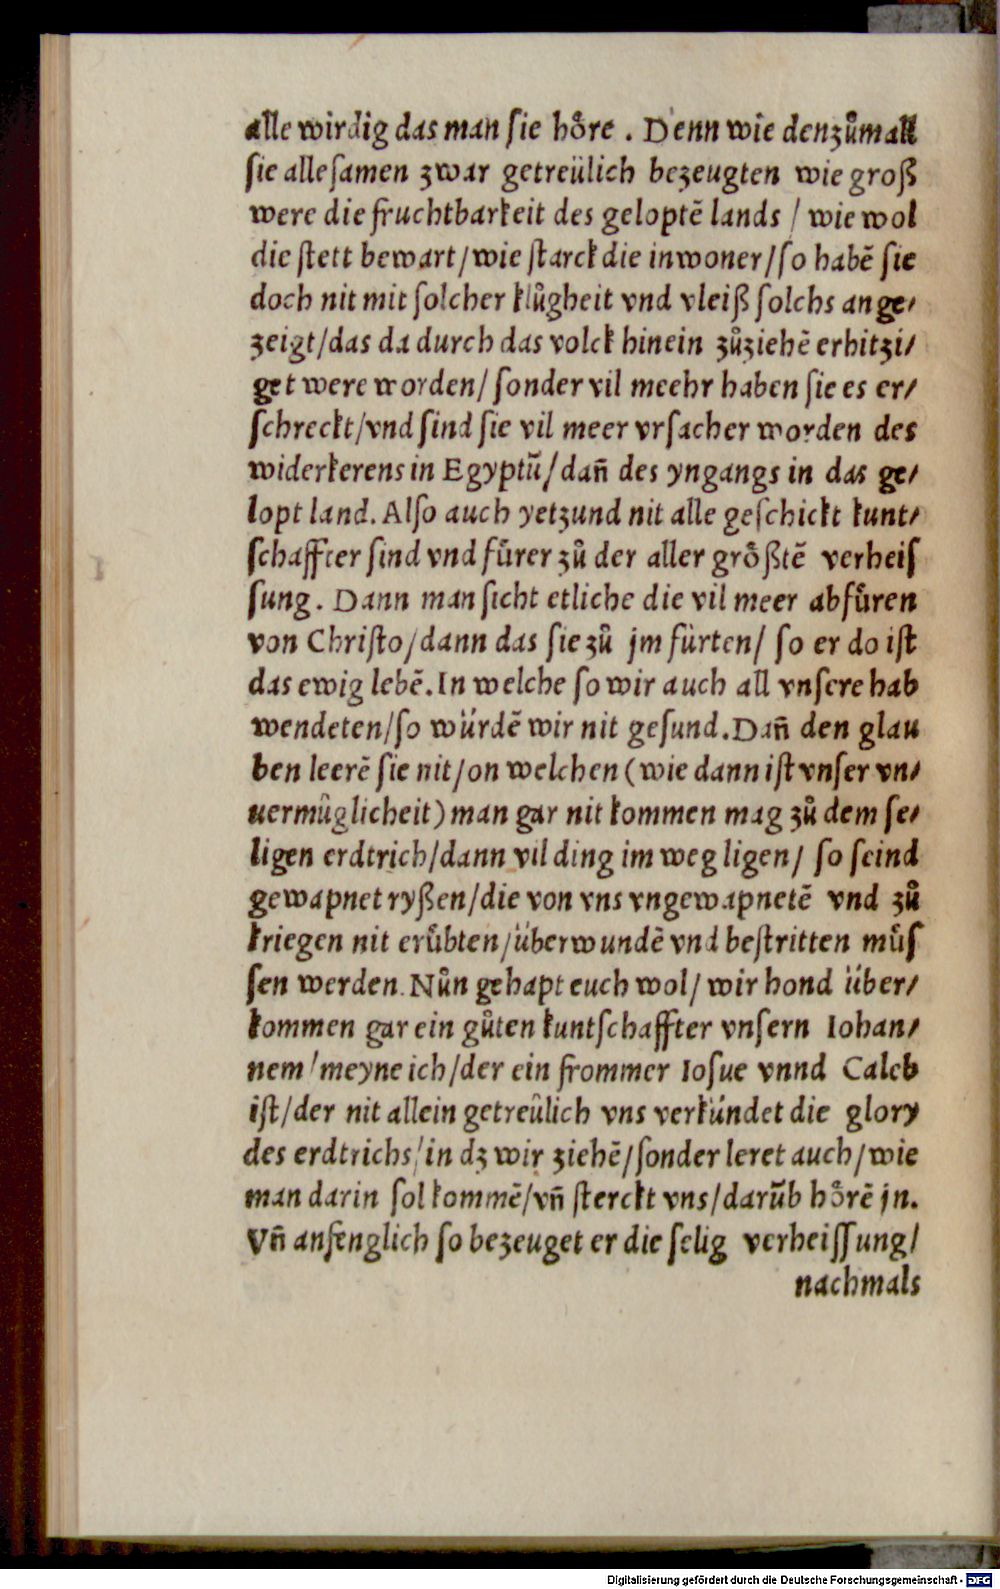 alle wirdig das man ſie hoͤre . Denn wie denzuͦmall
ſie alleſamen zwar getreülich bezeugten wie groß
were die fruchtbarkeit des geloptē lands / wie wol
die ſtett bewart/wie ſtarck die inwoner/ſo habē ſie
doch nit mit ſolcher kluͦgheit vnd vleiß ſolchs ange⸗
zeigt/das da durch das volck hinein zuͦziehē erhitzi⸗
get were worden/ ſonder vil meehr haben ſie es er⸗
ſchreckt/vnd ſind ſie vil meer vrſacher worden des
widerkerens in Egyptū/dañ des yngangs in das ge⸗
lopt land. Alſo auch yetzund nit alle geſchickt kunt⸗
ſchaffter ſind vnd fuͤrer zuͦ der aller groͤßtē verheiſ
ſung. Dann man ſicht etliche die vil meer abfuͤren
von Chriſto/dann das ſie zuͦ jm fürten/ ſo er do iſt
das ewig lebē. In welche ſo wir auch all vnſere hab
wendeten/ſo würdē wir nit geſund. Dañ den glau
ben leerē ſie nit/on welchen (wie dann iſt vnſer vn⸗
uermüglicheit) man gar nit kommen mag zuͦ dem ſe⸗
ligen erdtrich/dann vil ding im weg ligen/ ſo ſeind
gewapnet ryßen/die von vns vngewapnetē vnd zuͦ
kriegen nit eruͤbten/überwundē vnd beſtritten muͤſ
ſen werden. Nuͦn gehapt euch wol/ wir hond über⸗
kommen gar ein guͦten kuntſchaffter vnſern Iohan⸗
nem/meyne ich/der ein frommer Ioſue vnnd Caleb
iſt/der nit allein getreülich vns verkündet die glory
des erdtrichs/in dz wir ziehē/ſonder leret auch/wie
man darin ſol kommē/vñ ſterckt vns/darūb hoͤrē jn.
Vñ anfenglich ſo bezeuget er die ſelig verheiſſung/
nachmals
Digitalisierung gefördert durch die Deutsche Forschungsgemeinschaft - DFG